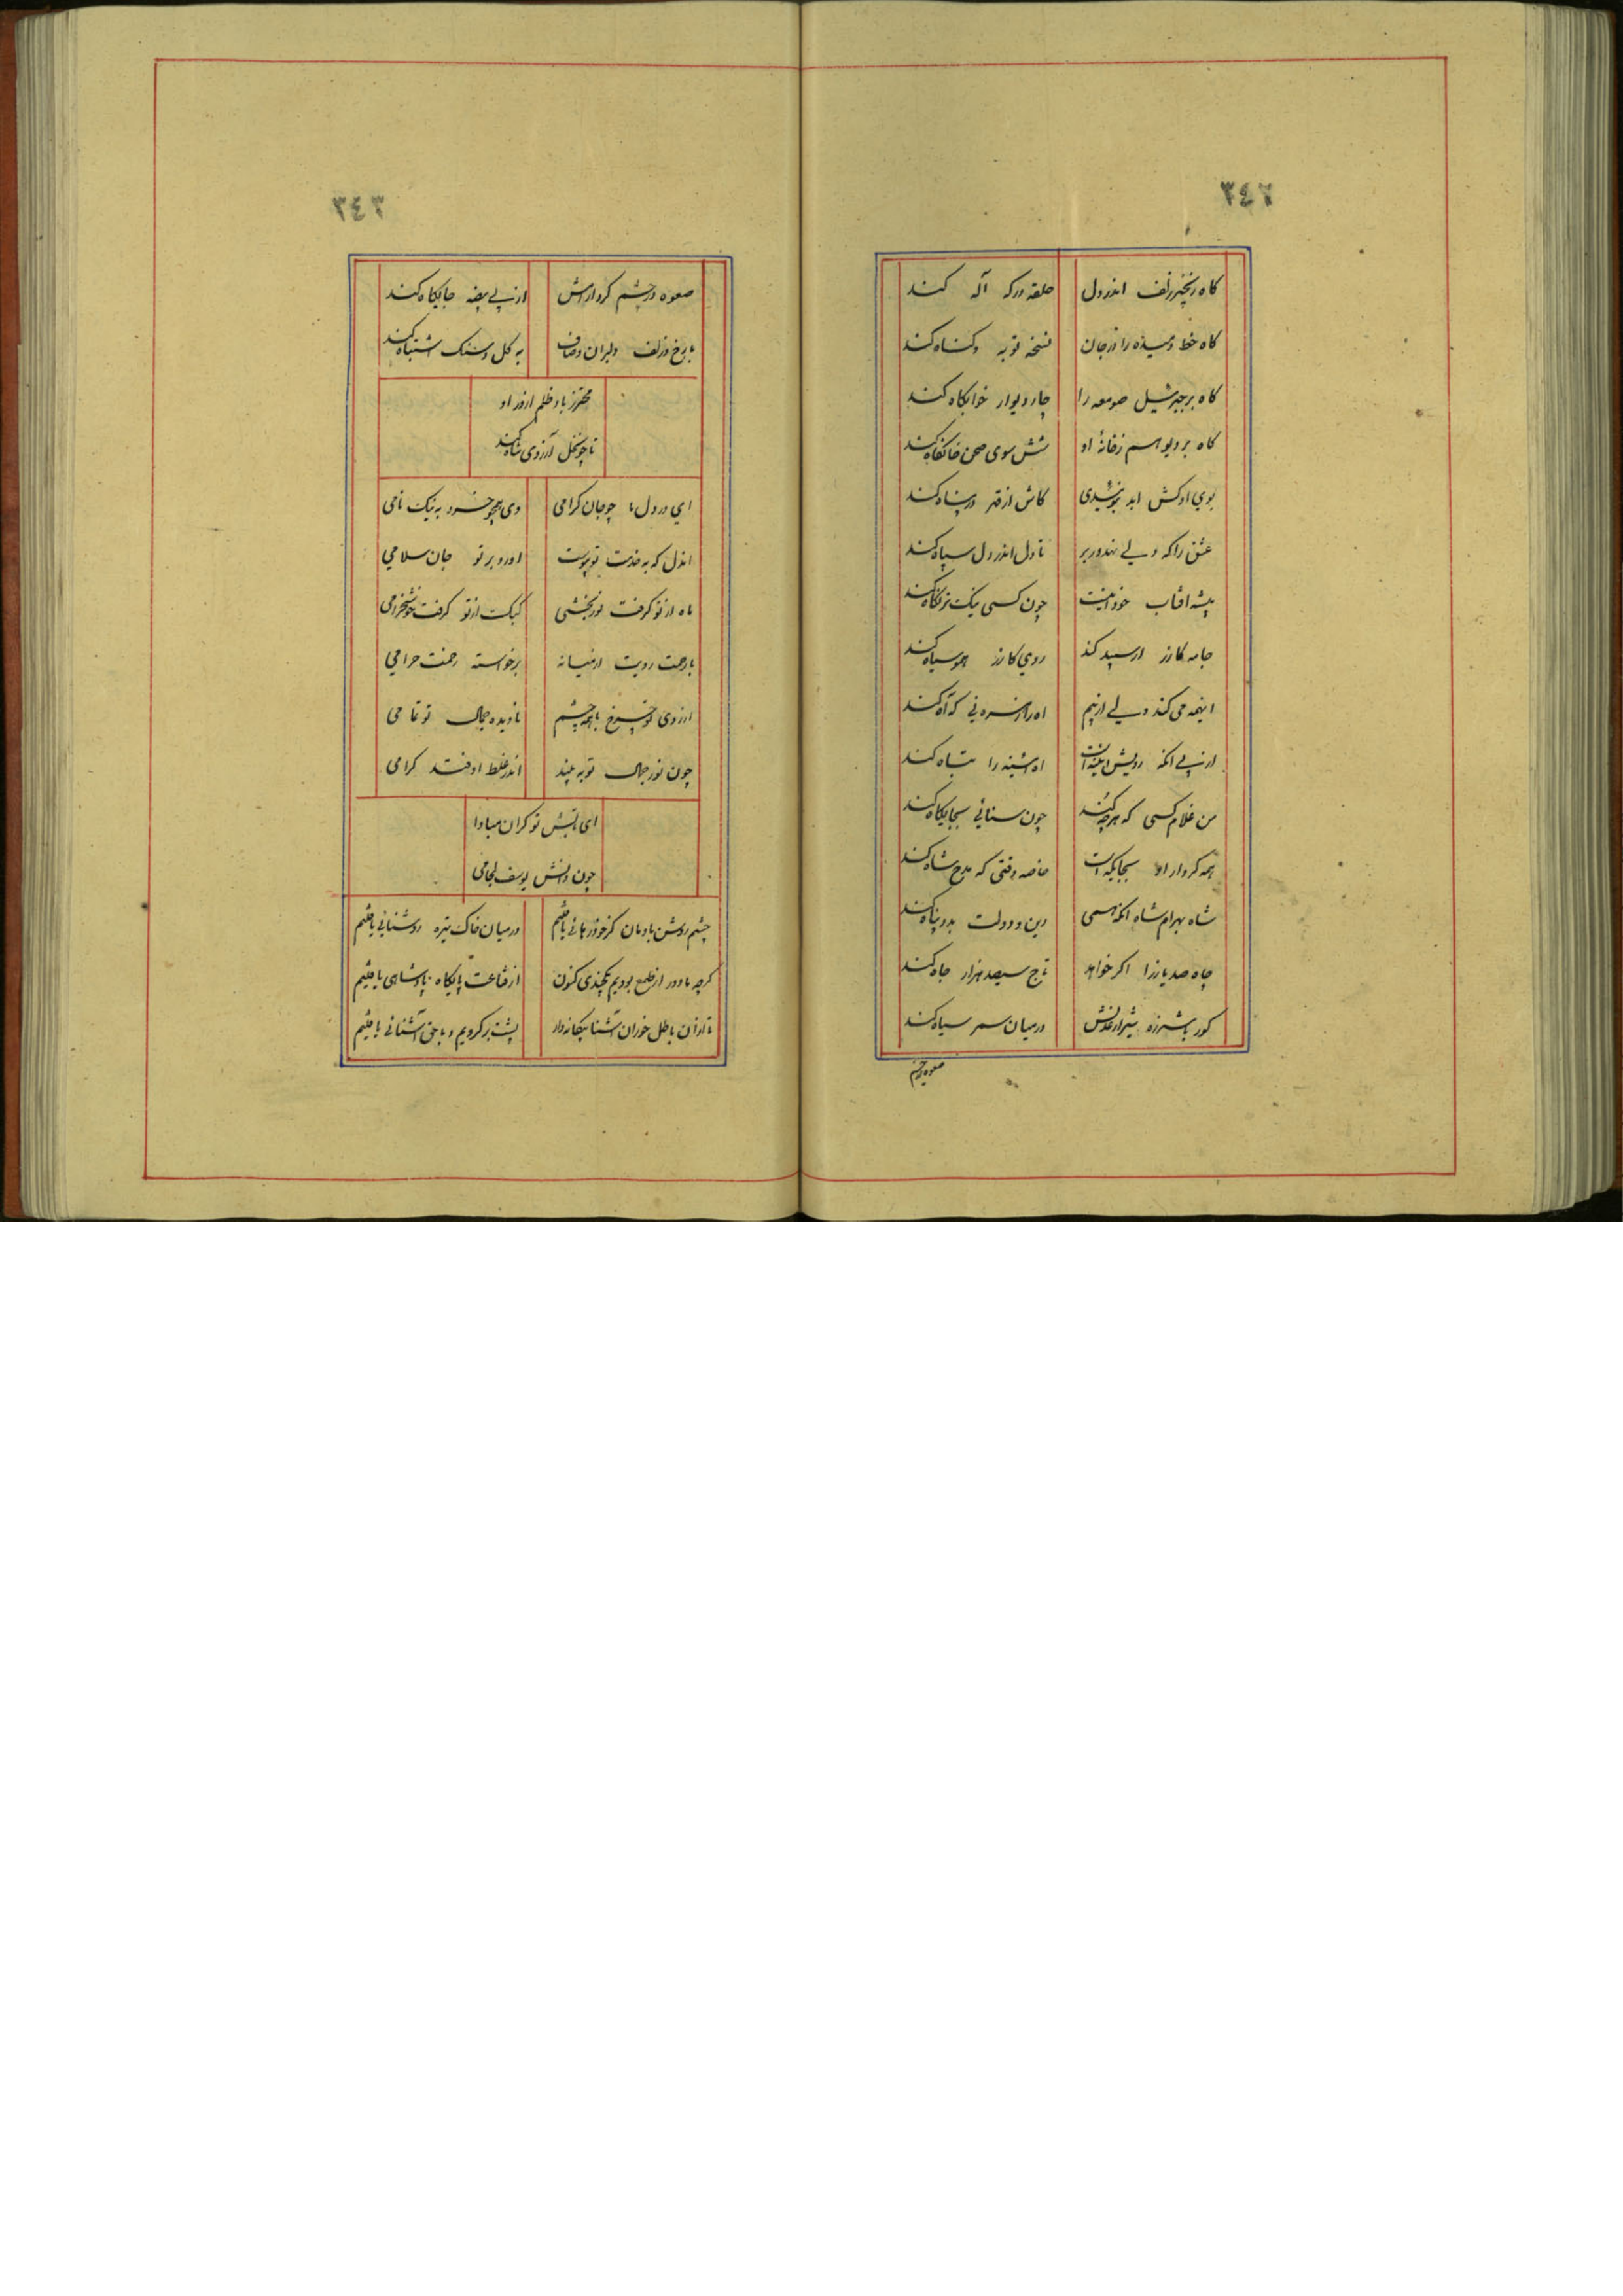 ٣٤٢
گاه زنجیر زلف اندر دل حلقه درگه آله کند
گاه خط دمیده را در جان نسخه توبه و گناه کند
گاه بر جبرئیل صومعه را چار دیوار خوابگاه کند
گاه بر دیو اسم رخانهٔ او شش سوی صحن خانقاه کند
بوی او کش ابد کاش از قهر در پناه کند
عشق را که ولی تا دل اندر دل سپاه کند
پیشه افتاب خود اینست چون کسی نیک تر نگاه کند
جامه کازر ار سپید کند روی کازر همو سیاه کند
اینهمه می کند ولی از بیم اه را زهره نی که آه کند
از پی انکه رویش اینه است اه اینه را تباه کند
من غلام کسی که هرچه کند چون سنائی بجایگاه کند
همه کردار او بجایگه است خاصه وقتی که مدح شاه کند
شاه بهرام شاه انکه همی دین و دولت بدو پناه کند
چاه صد یار را اگر خواهد تاج سیصد هزار جاه کند
کور با شرزه شیر از عدلش در میان سمر سیاه کند
صعوه در چشم
٣٤٣
صعوه در چشم کرد از امنش از پی بیضه جایگاه کند
با رخ و زلف دلبران به گل و سنگ اشتباه کند
محترز باد ظلم از در او
تا چو نخل آرزوی شاه کند
ای در دل ما چو جان گرامی وی همچو خرد به نیک نامی
اندل که به خدمت تو پیوست اورد بر تو جان سلامی
ماه از تو گرفت نور بخشی کبک از تو گرفت خوشخرامی
با رحمت رویت ارمنیانه برخواسته رحمت حرامی
از روی تو چرخ با همه چشم نادیده جمال تو تمامی
چون نور جمال تو به بیند اندر غلط اوفتد گرامی
ای تو کران مبادا
چون دانش یوسف لجامی
چشم روشن بادمان کز خود رهائی یافتیم در میان خاک تیره روشنائی یافتیم
گرچه ما دور از طمع بودیم یکچندی کنون از قناعت پایگاه پادشاهی یافتیم
تا از آن باطل خوران آشنا بیگانه وار پشت بر کردیم و با حق آشنائی یافتیم